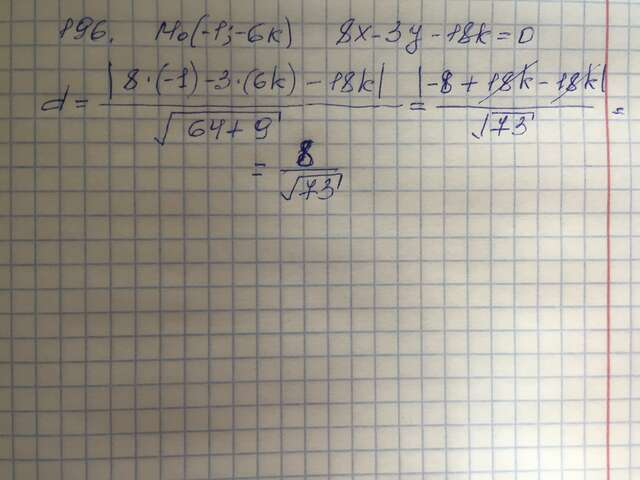 196. M₀(-1; -6k) 8x-3y-18k=0
d = |8·(-1)-3·(6k)-18k| / √64+9 = |-8+18k-18k| / √73 =
= 8/√73